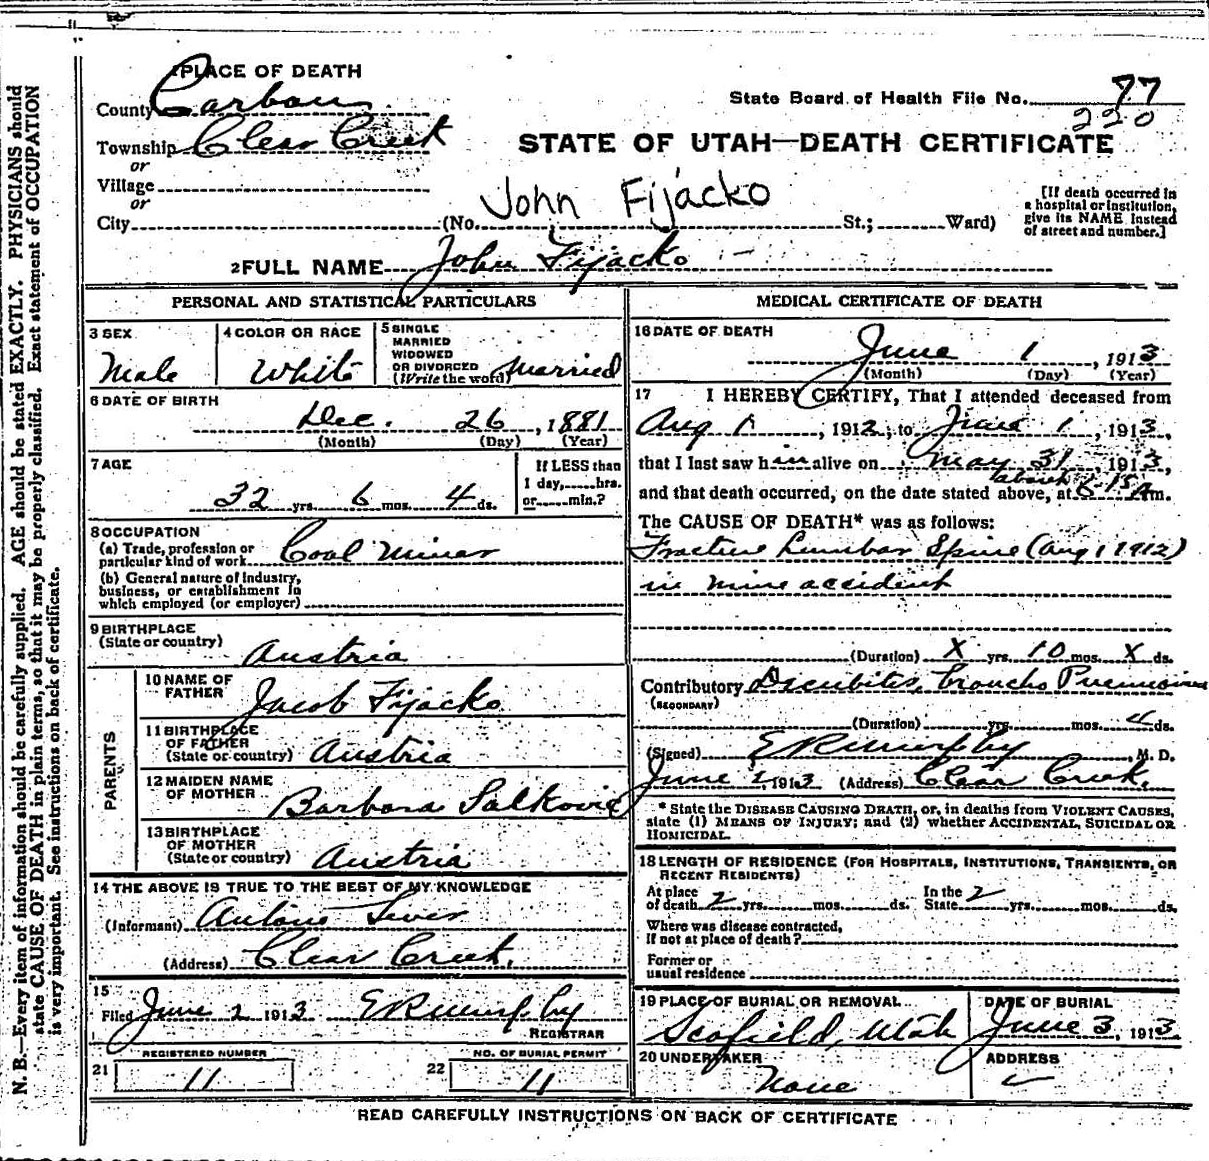 1 PLACE OF DEATH
County Carbon
State Board of Health File No. 77
220
Township Clear Creek
STATE OF UTAH—DEATH CERTIFICATE
or
Village
or
City (No. John Fijacko St.; Ward)
[If death occurred in
a hospital or institution,
give its NAME instead
of street and number.]
2 FULL NAME John Fijacko
PERSONAL AND STATISTICAL PARTICULARS
3 SEX
Male
4 COLOR OR RACE
White
5 SINGLE
MARRIED
WIDOWED
OR DIVORCED
(Write the word) Married
6 DATE OF BIRTH
Dec. 26, 1881
(Month) (Day) (Year)
7 AGE
32 yrs. 6 mos. 4 ds.
If LESS than
1 day, hrs.
or min.?
8 OCCUPATION
(a) Trade, profession or
particular kind of work Coal Miner
(b) General nature of industry,
business, or establishment in
which employed (or employer)
9 BIRTHPLACE
(State or country)
Austria
PARENTS
10 NAME OF
FATHER
Jacob Fijacko
11 BIRTHPLACE
OF FATHER
(State or country) Austria
12 MAIDEN NAME
OF MOTHER
Barbara Salkovic
13 BIRTHPLACE
OF MOTHER
(State or country) Austria
14 THE ABOVE IS TRUE TO THE BEST OF MY KNOWLEDGE
(Informant) Antone
(Address) Clear Creek.
15
Filed June 2 1913 E R Murphy
REGISTRAR
REGISTERED NUMBER
21 11
NO. OF BURIAL PERMIT
22 11
MEDICAL CERTIFICATE OF DEATH
16 DATE OF DEATH
June 1, 1913
(Month) (Day) (Year)
17 I HEREBY CERTIFY, That I attended deceased from
Aug 1, 1912, to June 1, 1913,
that I last saw him alive on May 31, 1913,
about
and that death occurred, on the date stated above, at 6-15 Am.
The CAUSE OF DEATH* was as follows:
Fracture Lumbar Spine (Aug 1 1912)
in mine accident
(Duration) X yrs. 10 mos. X ds.
Contributory Decubitis, Broncho Pneumonia
(SECONDARY)
(Duration) yrs. mos. 4 ds.
(Signed) E R Murphy, M. D.
June 2, 1913 (Address) Clear Creek.
* State the DISEASE CAUSING DEATH, or, in deaths from VIOLENT CAUSES,
state (1) MEANS OF INJURY; and (2) whether ACCIDENTAL, SUICIDAL OR
HOMICIDAL.
18 LENGTH OF RESIDENCE (FOR HOSPITALS, INSTITUTIONS, TRANSIENTS, OR
RECENT RESIDENTS)
At place
of death 2 yrs. mos. ds.
In the
State 2 yrs. mos. ds.
Where was disease contracted,
If not at place of death?
Former or
usual residence
19 PLACE OF BURIAL OR REMOVAL
Scofield, Utah
DATE OF BURIAL
June 3, 1913
20 UNDERTAKER
None
ADDRESS
READ CAREFULLY INSTRUCTIONS ON BACK OF CERTIFICATE
N. B.—Every item of information should be carefully supplied. AGE should be stated EXACTLY. PHYSICIANS should
state CAUSE OF DEATH in plain terms, so that it may be properly classified. Exact statement of OCCUPATION
is very important. See instructions on back of certificate.